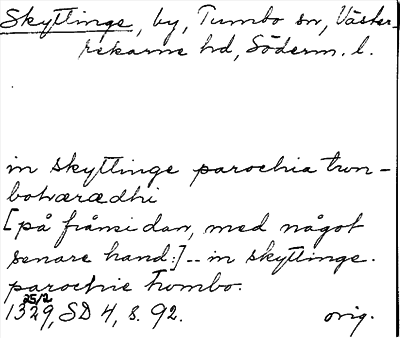 Skyttinge, by, Tumbo sn, Väster-
rekarne hd, Söderm. l.
in skyttinge parochia tvn-
bohæradhi
[på frånsidan, med något
senare hand:] -- in skyttinge.
parochie tvmbo.
25/2
1329, SD 4, s. 92. orig.